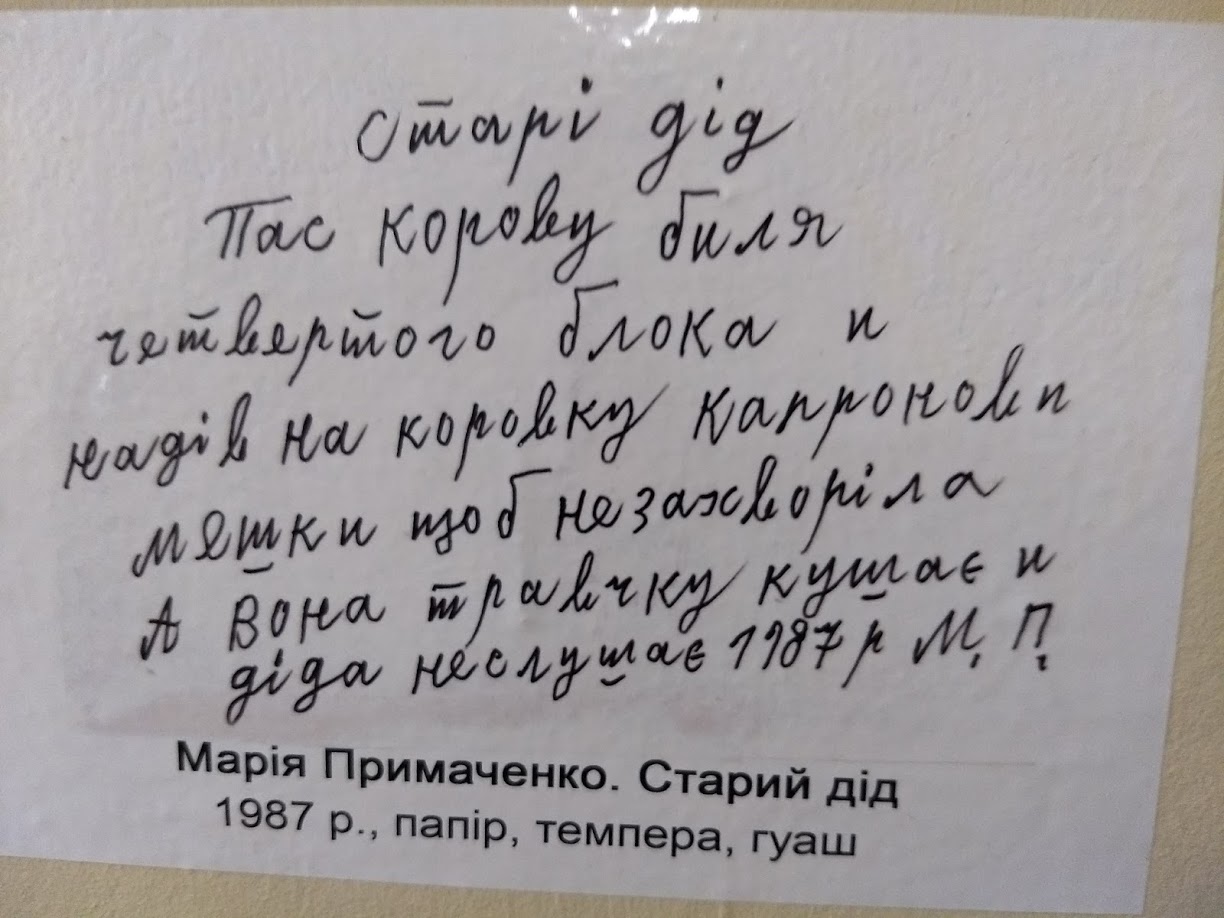 Старі дід
Пас корову биля
четвертого блока и
надів на коровку капронови
мешки щоб незахворіла
А вона травичку кушає и
діда неслушає 1987 р М. П.
Марія Примаченко. Старий дід
1987 р., папір, темпера, гуаш